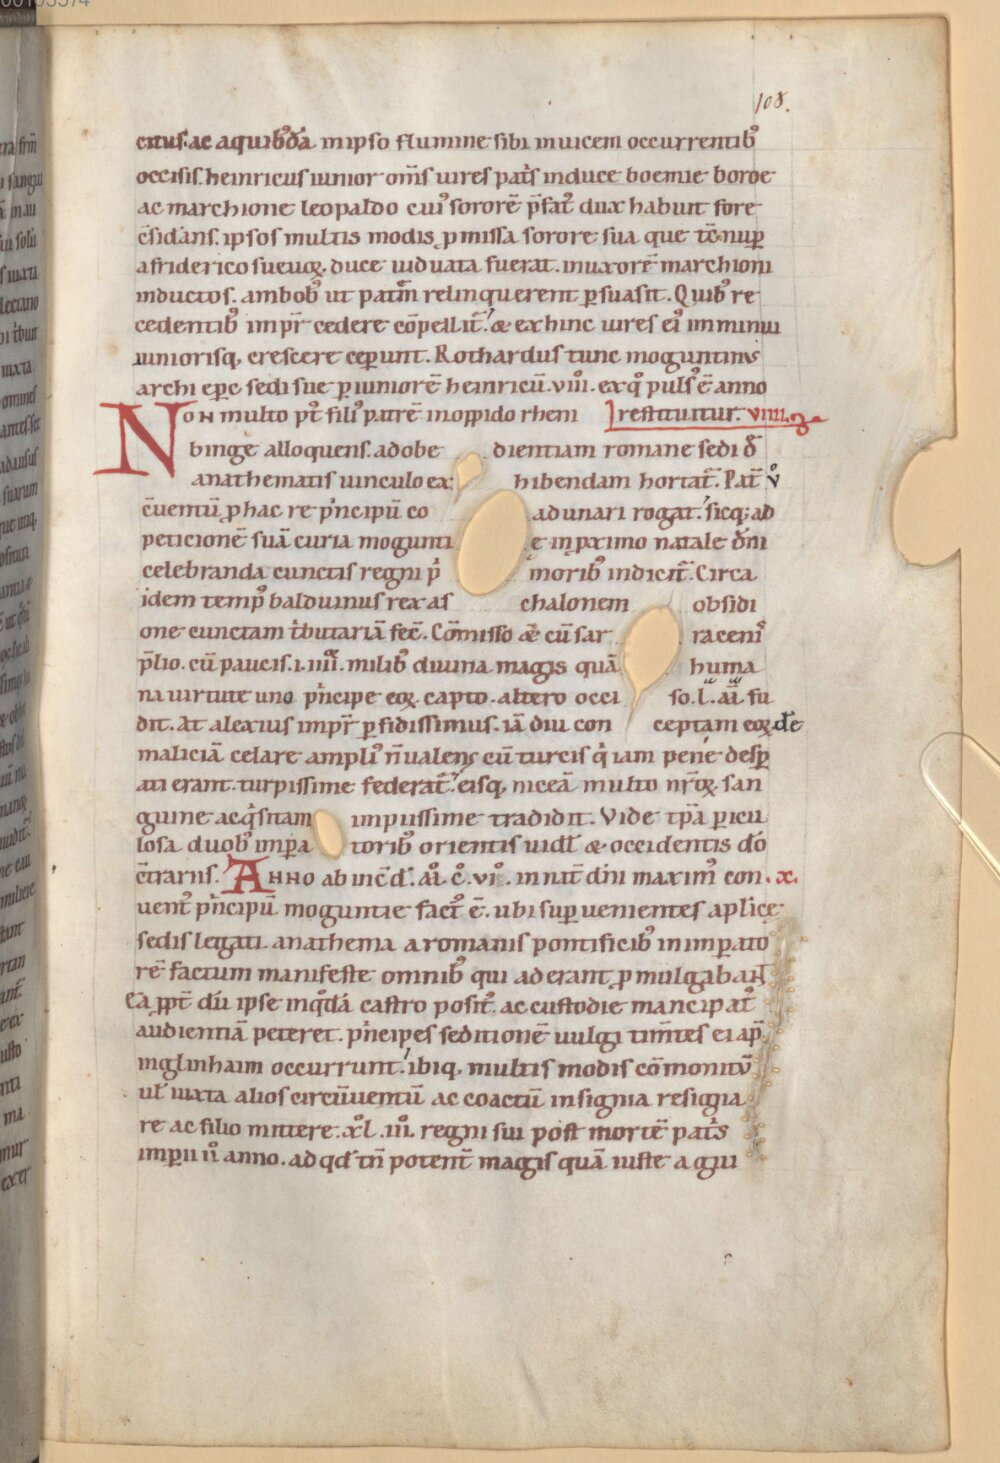 108.
citus. ac a quibꝰdā in ipso flumine sibi invicem occurrentibꝰ
occisis. heinricus iunior om̄s vires pat̓s in duce boemie boroe
ac marchione leopaldo cuiꝰ sororē p̄fatꝰ dux habuit fore
c̄sidans. ipsos multis modis ꝓmissa sorore sua que tc̄ nup̲
a friderico suevoꝝ duce viduata fuerat. in uxorē marchioni
inductos. ambobꝰ ut patrē relinquerent p̲suasit. Quibꝰ re
cedentibꝰ impr̄ cedere cōpellit̄. & exhinc vires eiꝰ imminui
iuniorisq; crescere cep̲unt. Rothardus tunc moguntinus
archi ep̄c sedi sue p̲ iuniorē heinricū. viii. ex qͦ pulsꝰ ē anno
restituitur. viiii.
Non multo pꝰt filiꝰ patrē in oppido rheni
binge alloquens. ad obedientiam romane sedi đ
anathematis vinculo exhibendam hortat̄. Pat̄ vͦ
c̄ventū ꝓ hac re p̓ncipū coadunari rogat. sicq; ad
peticionē suā curia moguntie in ꝓximo natale dn̄i
celebranda cunctis regni p̓moribꝰ indicit̄. Circa
idem tempꝰ balduinus rex aschalonem obsidi
one cunctam t̓butariā fec̄. Cōmisso & cū sarracenis
p̄lio. cū paucis. i. iiii. milibꝰ divina magis quā huma
na virtute uno p̓ncipe eoꝝ capto. altero occiso. l. ai. fu
dit. At alexius impr̄ p̲fidissimus. iā diu conceptam eoꝝ de
maliciā celare ampliꝰ n̄ valens cū turcis q̓ iam pene desp̲
ati erant. turpissime federat̄. eisq; niceā multo nr̄oꝝ san
guine acq̓sitam impiissime tradidit. Vide tp̄a p̲icu
losa duobꝰ imperatoribꝰ orientis vidl̄ & occidentis dō
c̄trariis. Anno ab inc̄ đ. aͦi. c̄. viͦ. in nat̄ dn̄i maximꝰ con x.
ventꝰ p̓ncipū moguntie factꝰ ē. ubi sup̲venientes ap̄lice
sedis legati anathema a romanis pontificibꝰ in imp̲ato
rē factum manifeste omnibꝰ qui aderant ꝓmulgabant
Ea ꝓpt̄ dū ipse in qͦdā castro positꝰ ac custodie mancipatꝰ
audientiā peteret. p̓ncipes seditionē vulgi tim̄tes ei ap̄
inglinhaim occurrunt. ibiq; multis modis cōmonitū
ul̓ iuxta alios circūventū ac coactū insignia resigna
re ac filio mittere. xͦl. iiiͦ. regni sui post mortē pat̓s
imp̲ii vͦ anno. ad qđ tn̄ potent̄ magis quā iuste agui